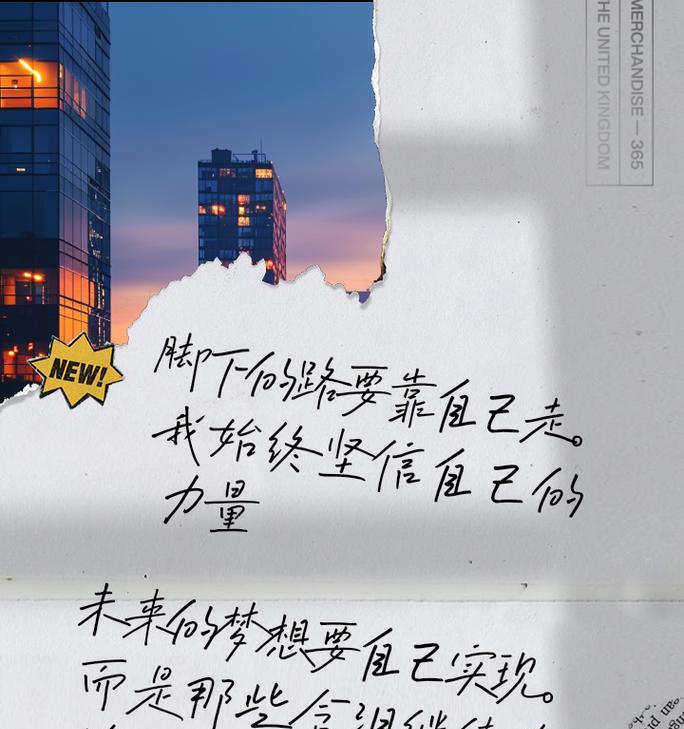 MERCHANDISE — 365
THE UNITED KINGDOM
NEW!
脚下的路要靠自己走。
我始终坚信自己的
力量
未来的梦想要自己实现。
而是那些